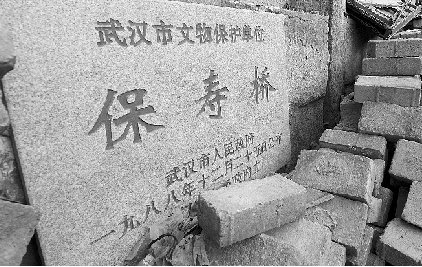 武汉市文物保护单位
保寿桥
武汉市人民政府
一九八八年十二月二十